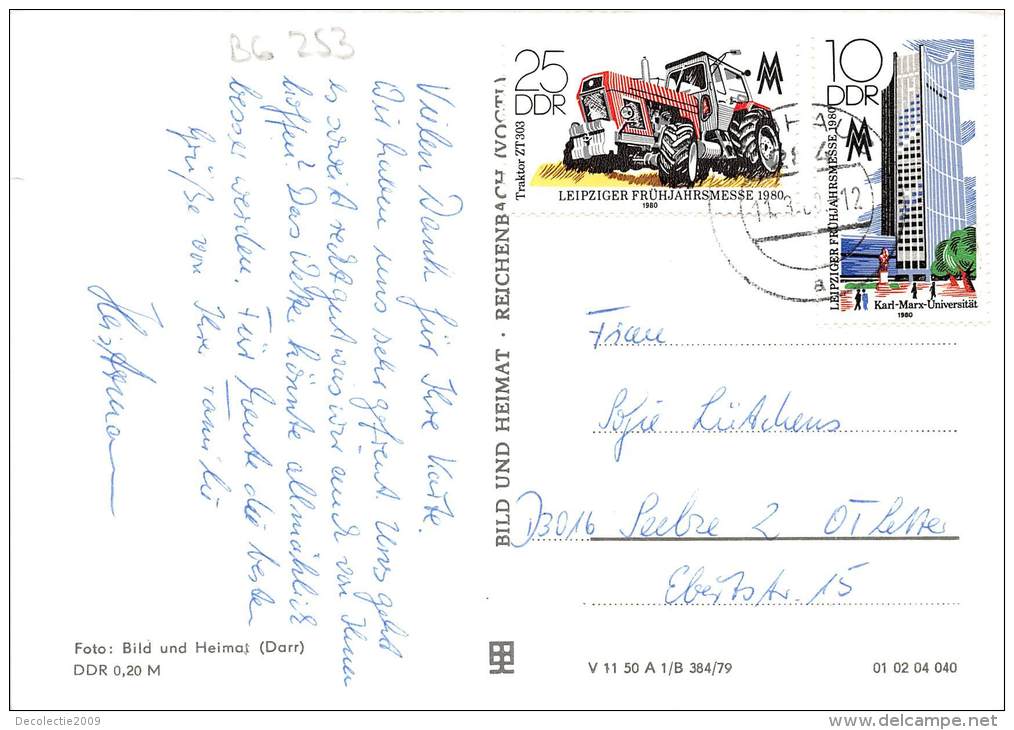 BG 253
Vielen Dank für Ihre Karte.
Wir haben uns sehr gefreut. Uns geht
es soweit recht gut was wir auch von Ihnen
hoffen. Das Wetter könnte allmählich
besser werden. Für heute die besten
Grüße von Ihrer Familie
Foto: Bild und Heimat (Darr)
DDR 0,20 M
BILD UND HEIMAT · REICHENBACH (VOGTL)
25
DDR
Traktor ZT 303
LEIPZIGER FRÜHJAHRSMESSE 1980
1980
10
DDR
LEIPZIGER FRÜHJAHRSMESSE 1980
Karl-Marx-Universität
1980
Frau
Sofie Lütchens
D3016 Seelze 2 OT Letter
Ebertstr. 15
V 11 50 A 1/B 384/79
01 02 04 040
Decolectie2009
www.delcampe.net